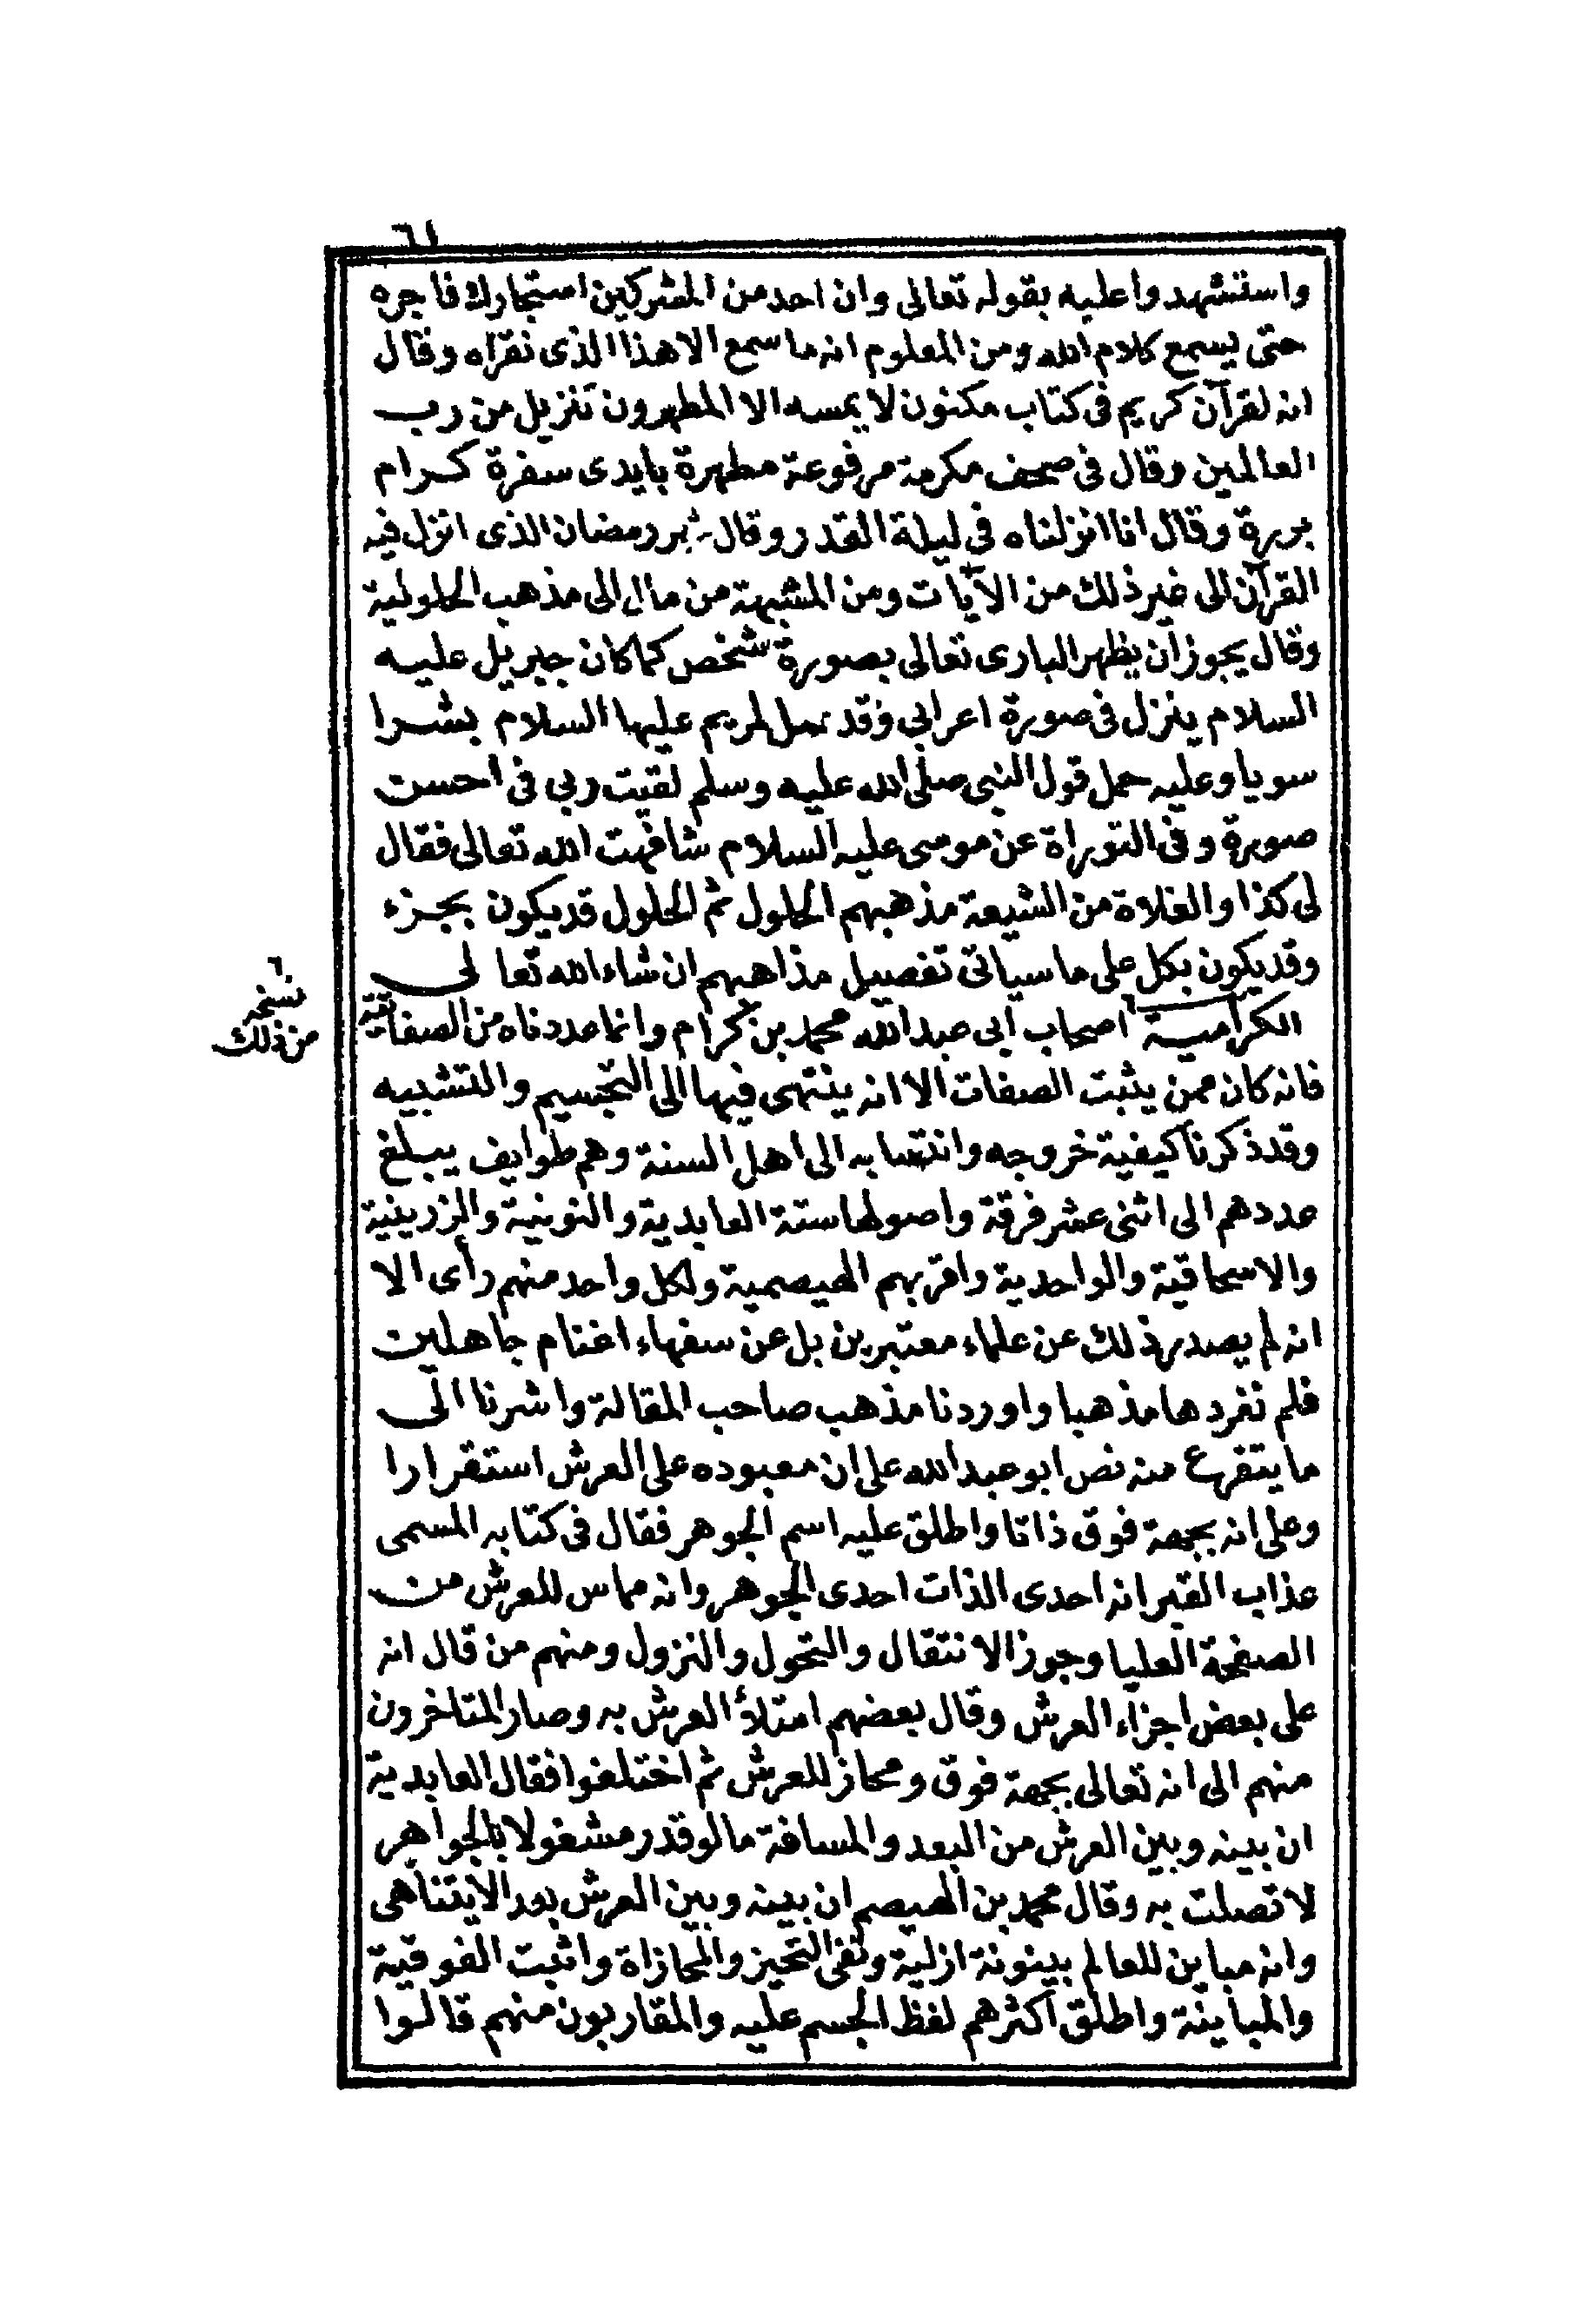 ٦١
واستشهدوا عليه بقوله تعالى وان احد من المشركين استجارك فاجره
حتى يسمع كلام الله ومن المعلوم انه ما سمع الا هذا الذى نقراه وقال
انه لقرآن كريم فى كتاب مكنون لا يمسه الا المطهرون تنزيل من رب
العالمين وقال فى صحف مكرمة مرفوعة مطهرة بايدى سفرة كرام
بررة وقال انا انزلناه فى ليلة القدر وقال شهر رمضان الذى انزل فيه
القرآن الى غير ذلك من الآيات ومن المشبهة من مال الى مذهب الحلولية
وقال يجوز ان يظهر البارى تعالى بصورة شخص كما كان جبريل عليه
السلام ينزل فى صورة اعرابي وقد تمثل لمريم عليها السلام بشرا
سويا وعليه حمل قول النبى صلى الله عليه وسلم لقيت ربي فى احسن
صورة وفى التوراة عن موسى عليه السلام شافهت الله تعالى فقال
لى كذا والغلاة من الشيعة مذهبهم الحلول ثم الحلول قد يكون بجزء
وقد يكون بكل على ما سياتى تفصيل مذاهبهم ان شاء الله تعالى
الكرامية ٦ اصحاب ابى عبد الله محمد بن كرام وانما عددناه من الصفاتية
٦ نسخه
من ذلك
فانه كان ممن يثبت الصفات الا انه ينتهى فيها الى التجسيم والتشبيه
وقد ذكرنا كيفية خروجه وانتسابه الى اهل السنة وهم طوايف يبلغ
عددهم الى اثنى عشر فرقة واصولها ستة العابدية والنونية والزرينية
والاسحاقية والواحدية واقربهم الهيصمية ولكل واحد منهم رأى الا
انه لم يصدر ذلك عن علماء معتبرين بل عن سفهاء اغتام جاهلين
فلم نفردها مذهبا واوردنا مذهب صاحب المقالة واشرنا الى
ما يتفرع منه نص ابو عبد الله على ان معبوده على العرش استقرارا
وعلى انه بجهة فوق ذاتا واطلق عليه اسم الجوهر فقال فى كتابه المسمى
عذاب القبر انه احدى الذات احدى الجوهر وانه مماس للعرش من
الصفحة العليا وجوز الانتقال والتحول والنزول ومنهم من قال انه
على بعض اجزاء العرش وقال بعضهم امتلأ العرش به وصار المتاخرون
منهم الى انه تعالى بجهة فوق ومحاز للعرش ثم اختلفوا فقال العابدية
ان بينه وبين العرش من البعد والمسافة ما لو قدر مشغولا بالجواهر
لاتصلت به وقال محمد بن الهيصم ان بينه وبين العرش بعدا لا يتناهى
وانه مباين للعالم بينونة ازلية ونفى التحيز والمحازاة واثبت الفوقية
والمباينة واطلق اكثرهم لفظ الجسم عليه والمقاربون منهم قالوا